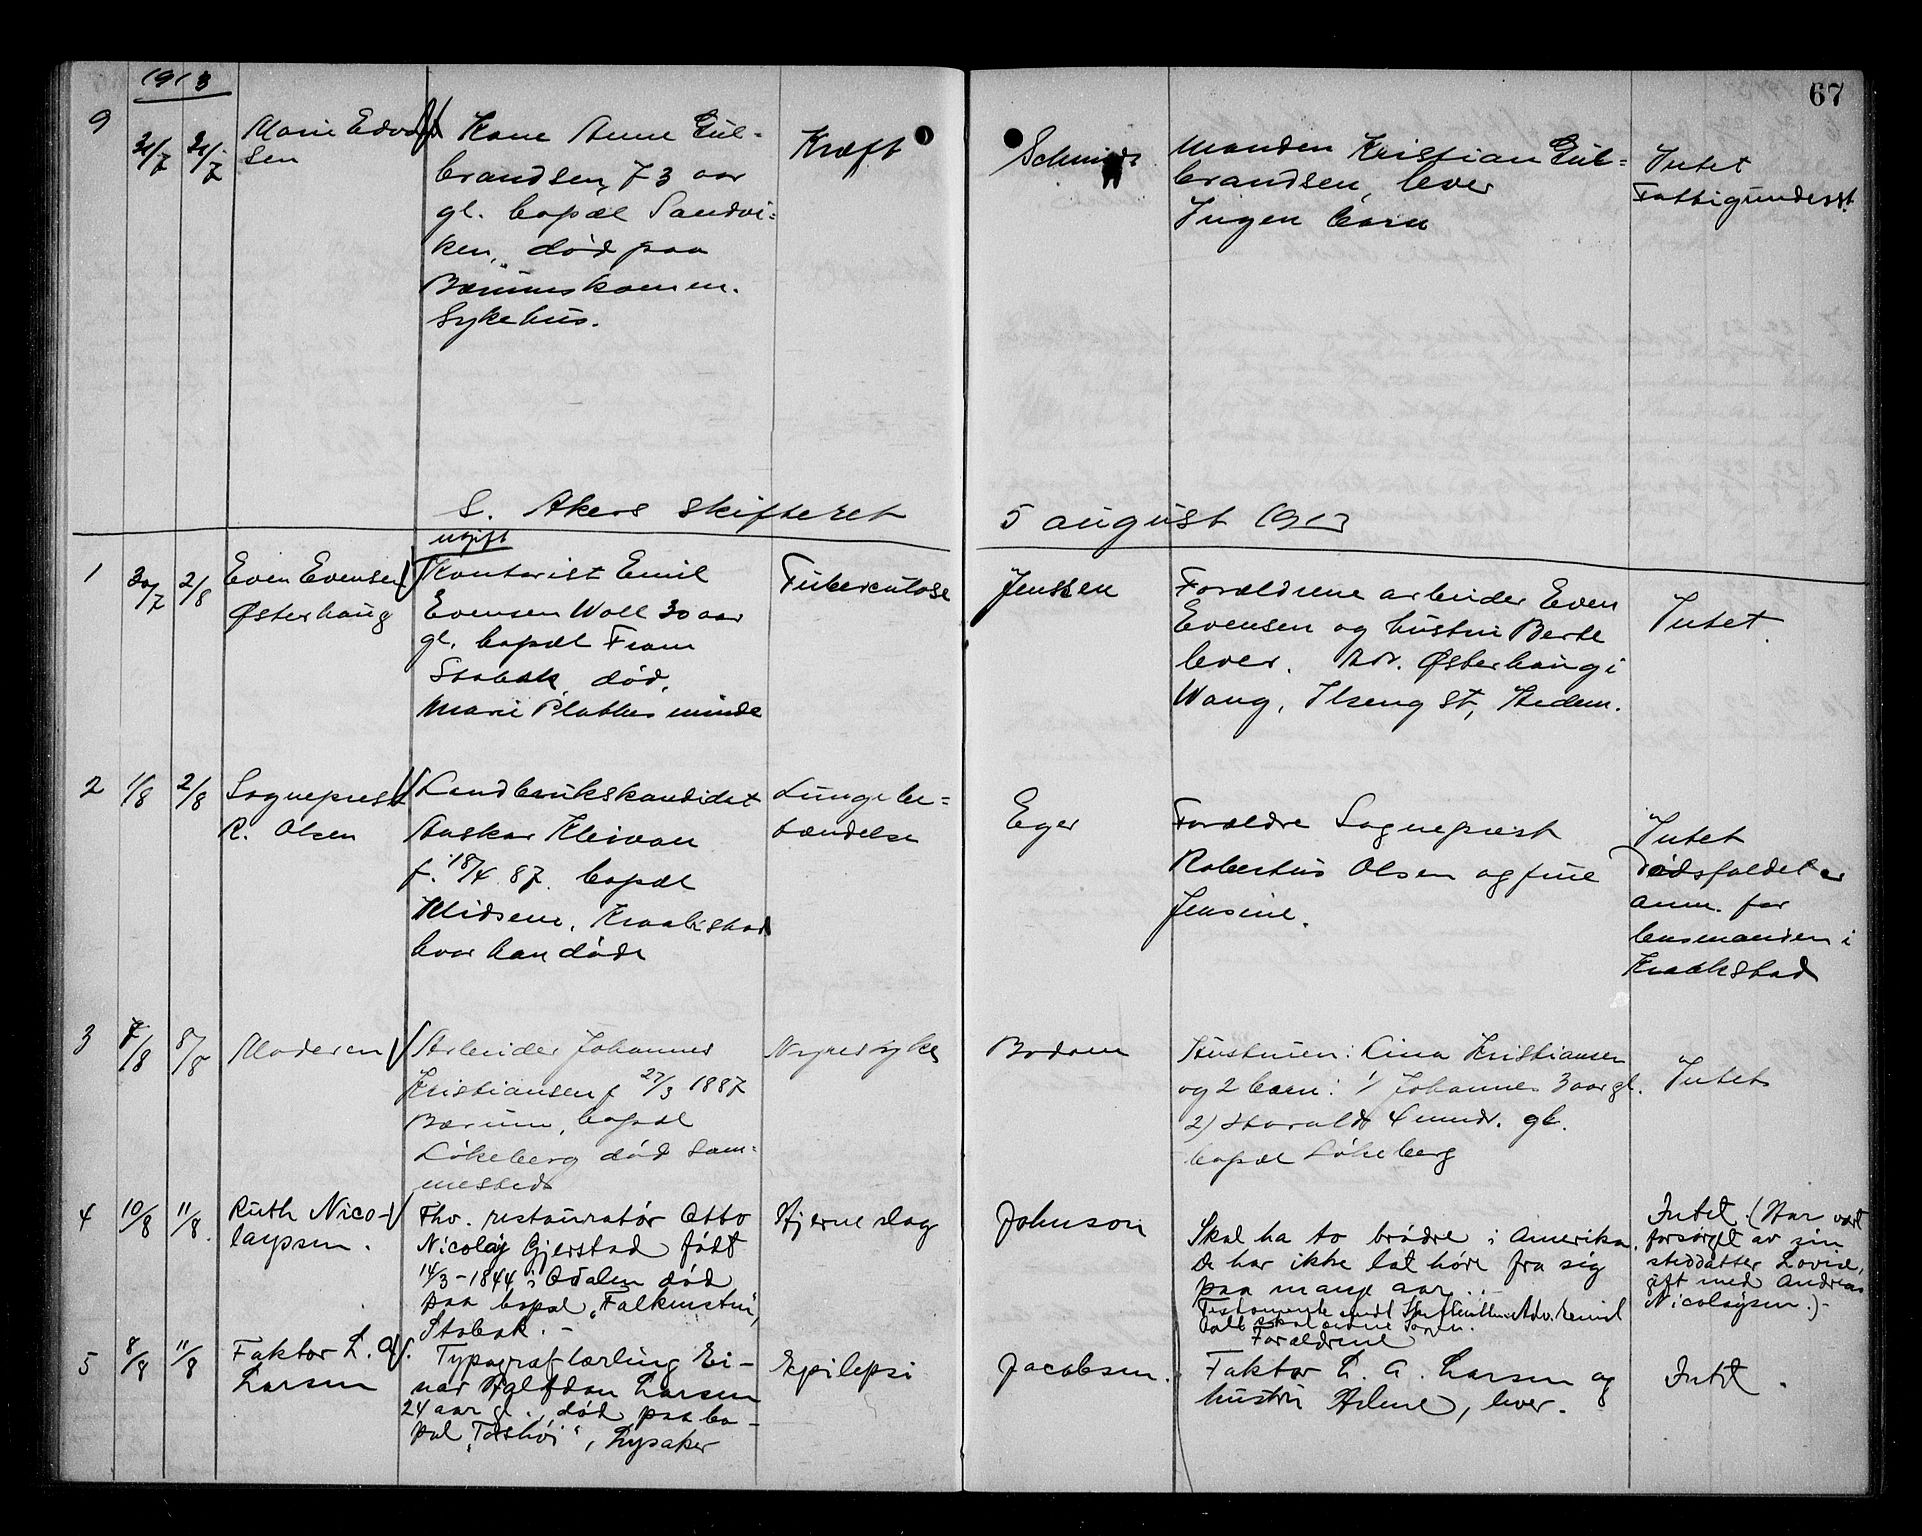 1913
67
9
31/7
31/7
Marie Edvard
sen
Kone Anne Gul-
brandsen, 73 aar
gl. bopæl Sandvi-
ken, død paa
Bærums kommun.
Sykehus.
Kræft
Schmidt
Manden Kristian Gul-
brandsen, lever
Ingen barn
Intet
Fattigunderst.
S. Akers skifteret
5 august 1913
1
30/7
2/8
Even Evensen
Østerhaug
ugift
Kontorist Emil
Evensen Woll 30 aar
gl. bopæl Fram
Stabæk, død,
Marie Plathes minde
Tuberculose
Jenssen
Forældrene arbeider Even
Evensen og hustru Berte
lever. Adr. Østerhaug i
Wang, Ilseng St, Hedem.
Intet.
2
1/8
2/8
Sogneprest
R. Olsen
Landbrukskandidat
Anskar Kleivan
f. 18/4 87. bopæl
Klidsene, Kraakstad
hvor han døde
Lungebe-
tændelse
Eger
Forældre Sogneprest
Robertus Olsen og frue
Jensine.
Intet
Dødsfaldet er
anm. for
lensmanden i
Kraakstad
3
7/8
8/8
Moderen
Arbeider Johannes
Kristiansen f 27/3 1887
Bærum, bopæl
Løkeberg død sam-
mesteds
Nyresyke
Bodom
Hustruen: Lina Kristiansen
og 2 barn: 1/ Johannes 3 aar gl.
2) Harald 4 mndr. gl.
bopæl Løkeberg
Intet
4
10/8
11/8.
Ruth Nico-
laysen.
Fhv. restauratør Otto
Nicolay Gjerstad født
14/3-1844 i Odalen død
paa bopæl "Falkensten",
Stabæk.-
Hjerneslag
Johnson
Skal ha to brødre i Amerika.
De har ikke lat høre fra sig
paa mange aar.
Testamente sendt Adv. Emil
skal ordne
Intet. (Har vært
forsørget av sin
steddatter Lovise,
gift med Andreas
Nicolaysen.)-
5
8/8
11/8
Faktor L. A.
Larsen
Typograflærling Ei-
nar Halfdan Larsen
24 aar gl., død paa bo-
pæl "Toshøi", Lysaker
Epilepsi
Jacobsen.
Forældrene
Faktor L. A. Larsen og
hustru Helene, lever.
Intet.